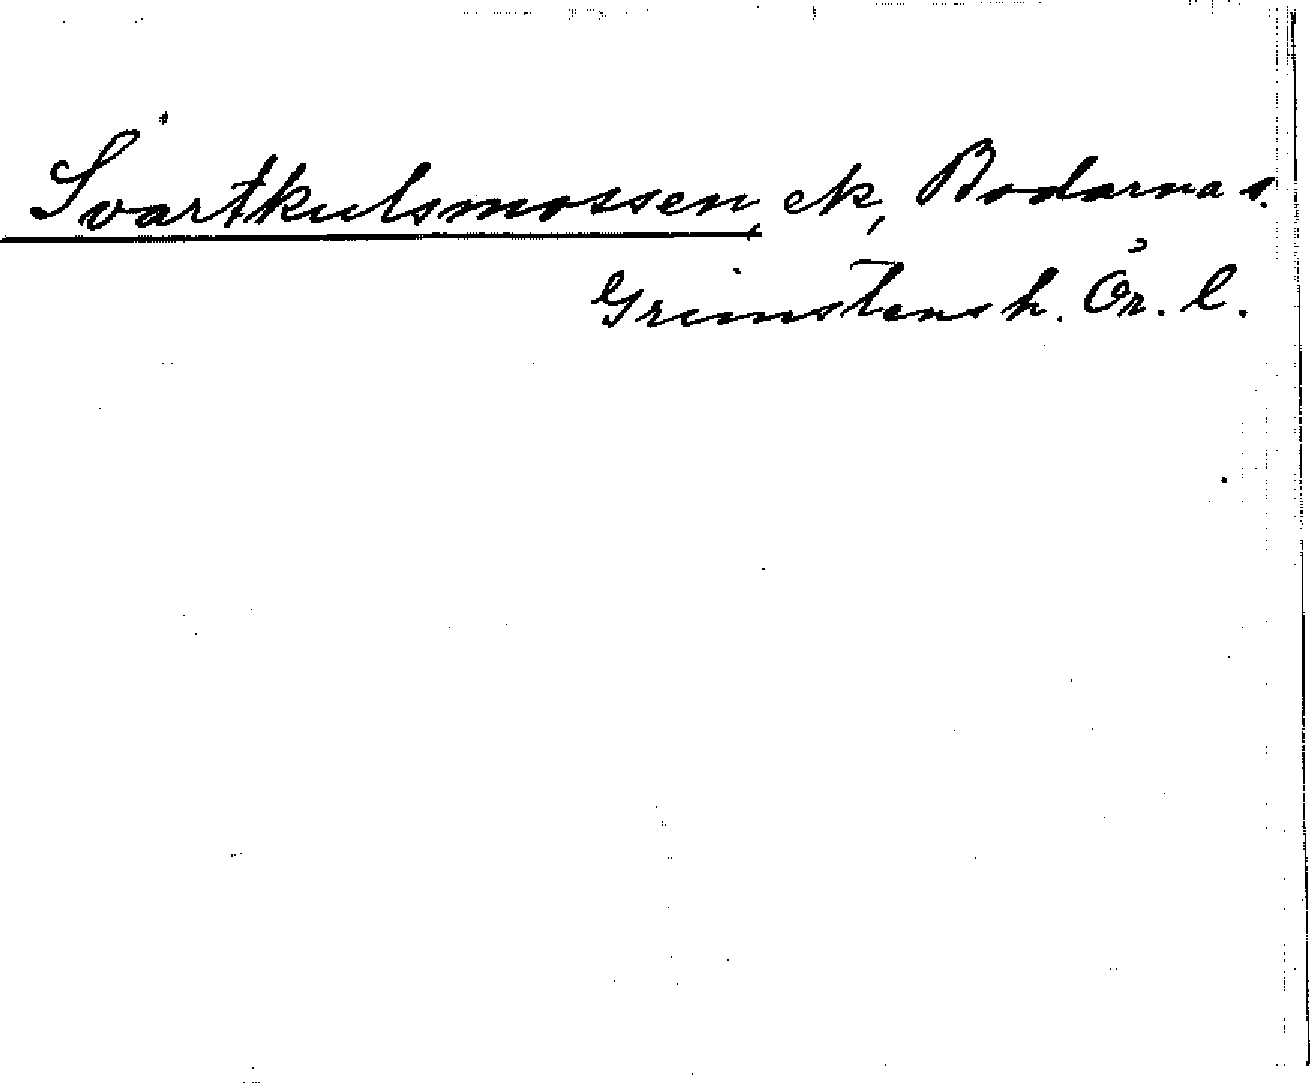 Svartkulsmossen, ek, Bodarna s.
Grimstens h. Ör. l.